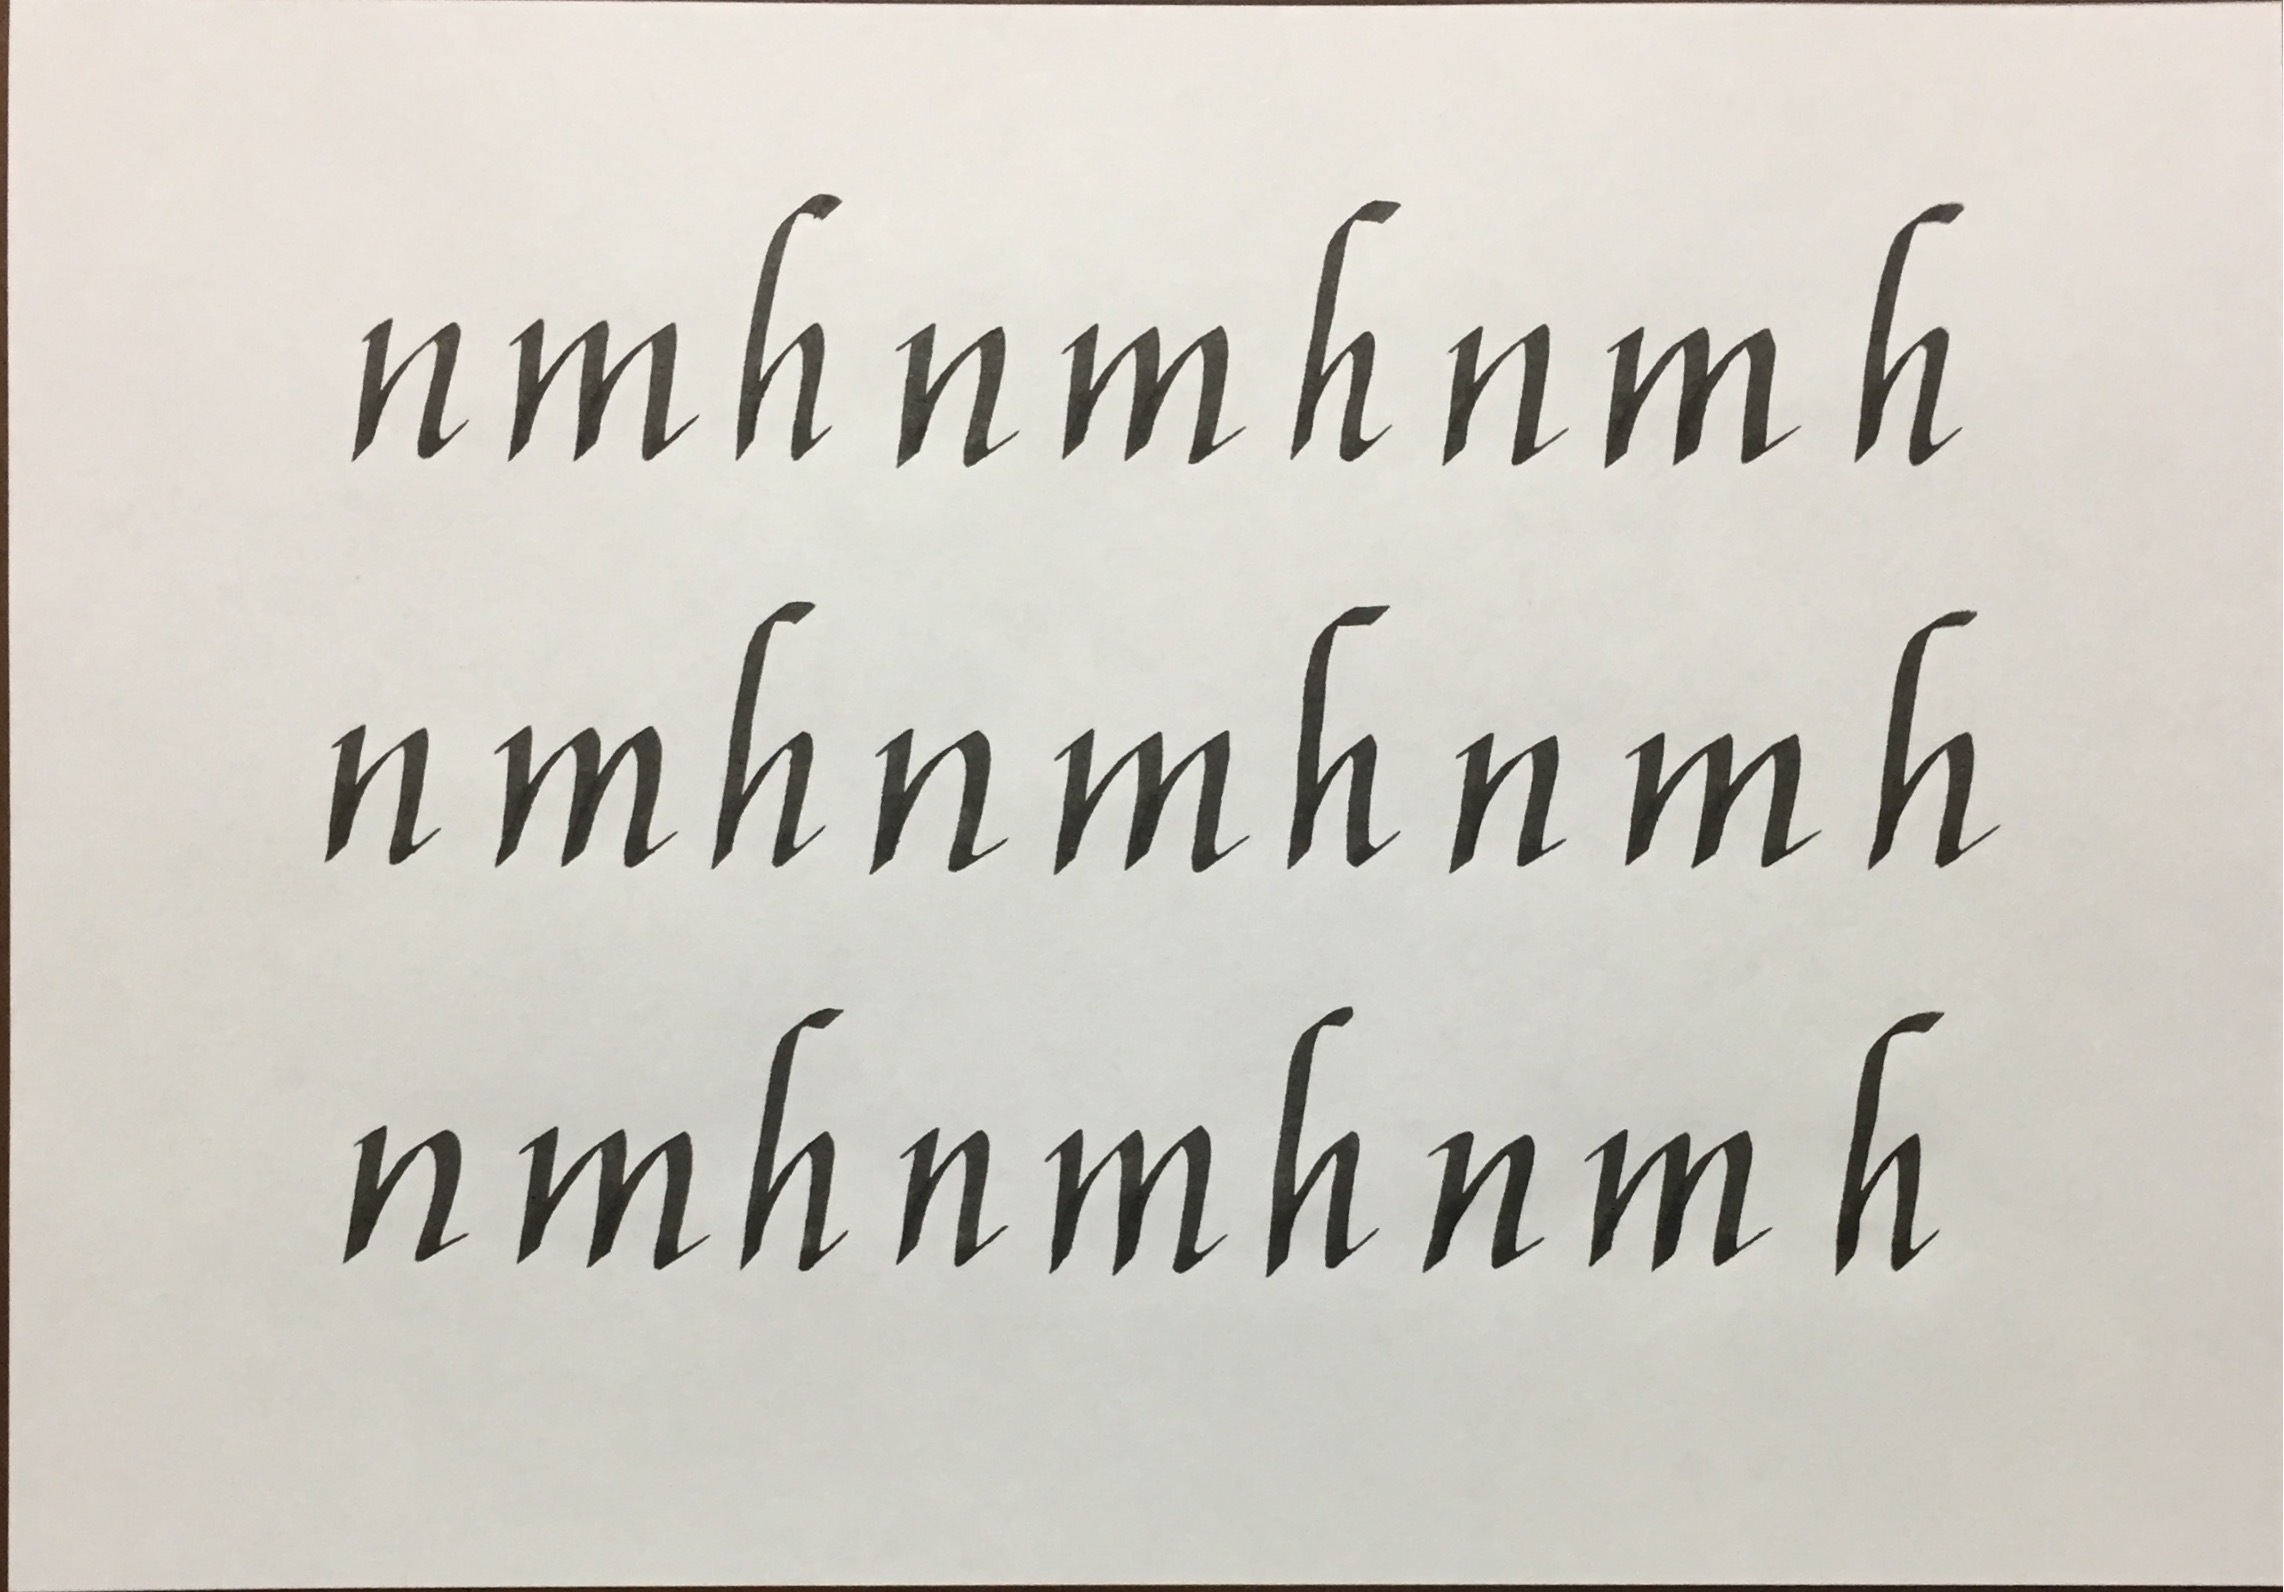 nmhnmhnmh
nmhnmhnmh
nmhnmhnmh